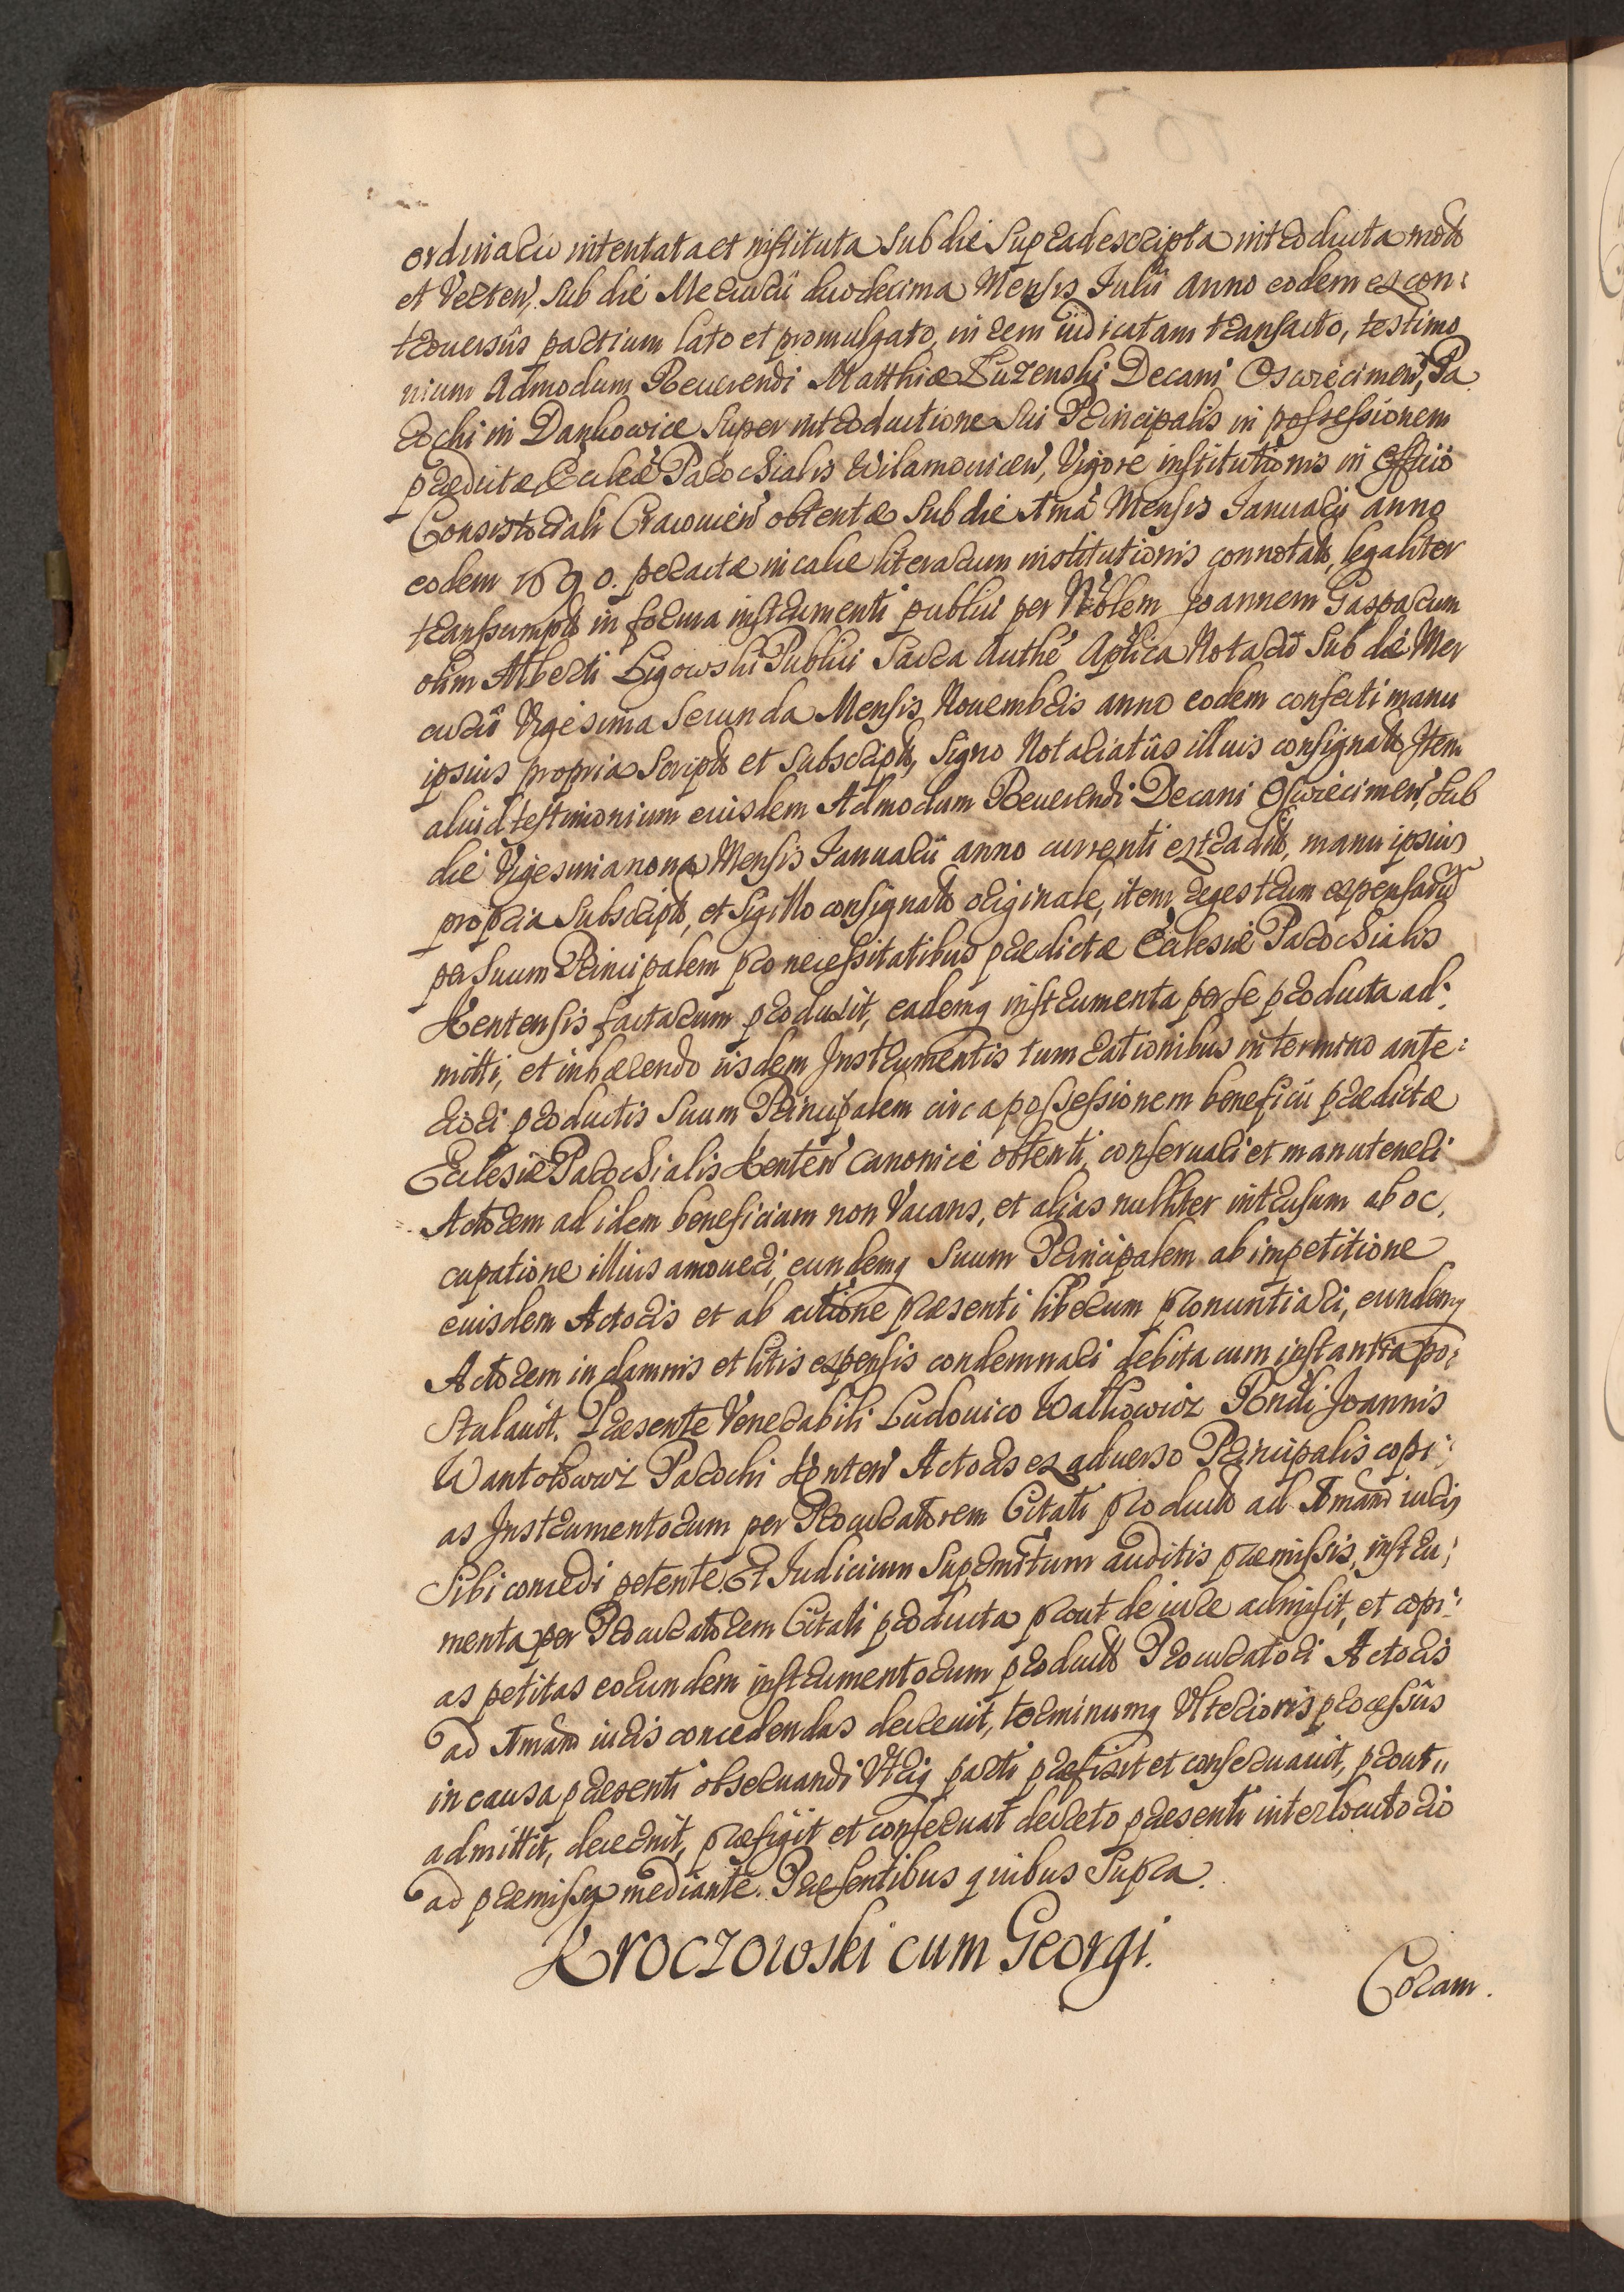 ordinario intentata et instituta sub die supradescripta introducta moto
et Verten, sub die Mercurii duodecima Mensis Julii anno eodem ex con:
trouersiis partium lato et promulgato, in rem iudicatam transacto, testimo
nium Admodum Reuerendi Matthiæ Luzenski Decani Oswiecimen, Pa
rochi in Dankowice super introductione sui Principalis in possessionem
prædictæ Eccleæ Parochialis Wilamovicen, Vigore institutionis in Officio
Consistoriali Cracovien obtentæ sub die Ama Mensis Januarii anno
eodem 1690. peractæ in calce literarum institutionis connotato, legaliter
transsumpto in forma instrumenti publici per Nobilem Joannem Gasparum
olim Alberti Ligowski Publicu Sacra Authe Aplica Notariu sub die Mer
curii Vigesima Secunda Mensis Nouembris anno eodem confecti manu
ipsius propria Scripto et subscripto, signo Notariatus illius consignato, Item
aliud testimonium eiusdem Admodum Reuerendi Decani Oswiecimen, sub
die Vigesima nona Mensis Januarii anno currenti extradito, manu ipsius
propria subscripto, et sigillo consignato originale, item regestrum expensaru
per suum Principalem pro necessitatibus prædictæ Ecclesiæ Parochialis
Kentensis factarum produxit, eademq instrumenta per se producta ad:
mitti, et inhærendo iisdem Instrumentis tum rationibus in termino ante:
riori productis suum Principalem circa possessionem beneficii prædictæ
Ecclesiæ Parochialis Kenten Canonice obtenti, conseruari et manuteneri
Actorem ad idem beneficium non Vacans, et alias nulliter intrusum ab oc,
cupatione illius amoueri, eundemq suum Principalem ab impetitione
eiusdem Actoris et ab actione præsenti liberum pronuntiari, eundemq
Actorem in damnis et litis expensis condemnari debita cum instantia po:
stulauit. Præsente Venerabili Ludouico Walkowicz Rndi Joannis
Wantolowicz Parochi Kenten Actoris ex aduerso Principalis copi:
as Instrumentorum per Procuratorem Citati producto ad Amam iuris
Sibi concedi petente. Et Judicium supemitum auditis præmissis, instru:
menta per Procuratorem Citati producta prout de iure admisit, et copi:
as petitas eorundem instrumentorum producto Procuratori Actoris
ad Amam iuris concedendas decreuit, terminumq Vlterioris processus
in causa præsenti obseruandi Vtriq parti præfixit et conseruauit, prout,,
admittit, decernit, præfigit et conseruat decreto præsenti interlocutorio
ad præmissa mediante. Præsentibus quibus supra.
Kroczowski cum Georgi.
Coram.